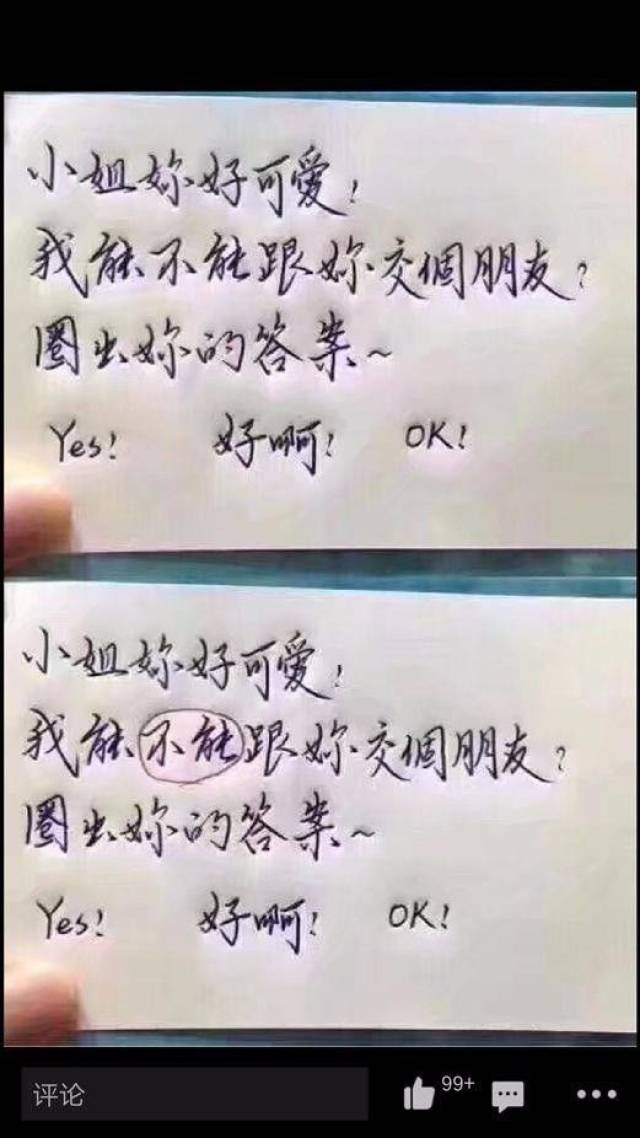 小姐妳好可愛!
我能不能跟妳交個朋友?
圈出妳的答案~
Yes! 好啊! OK!
小姐妳好可愛!
我能不能跟妳交個朋友?
圈出妳的答案~
Yes! 好啊! OK!
评论 99+